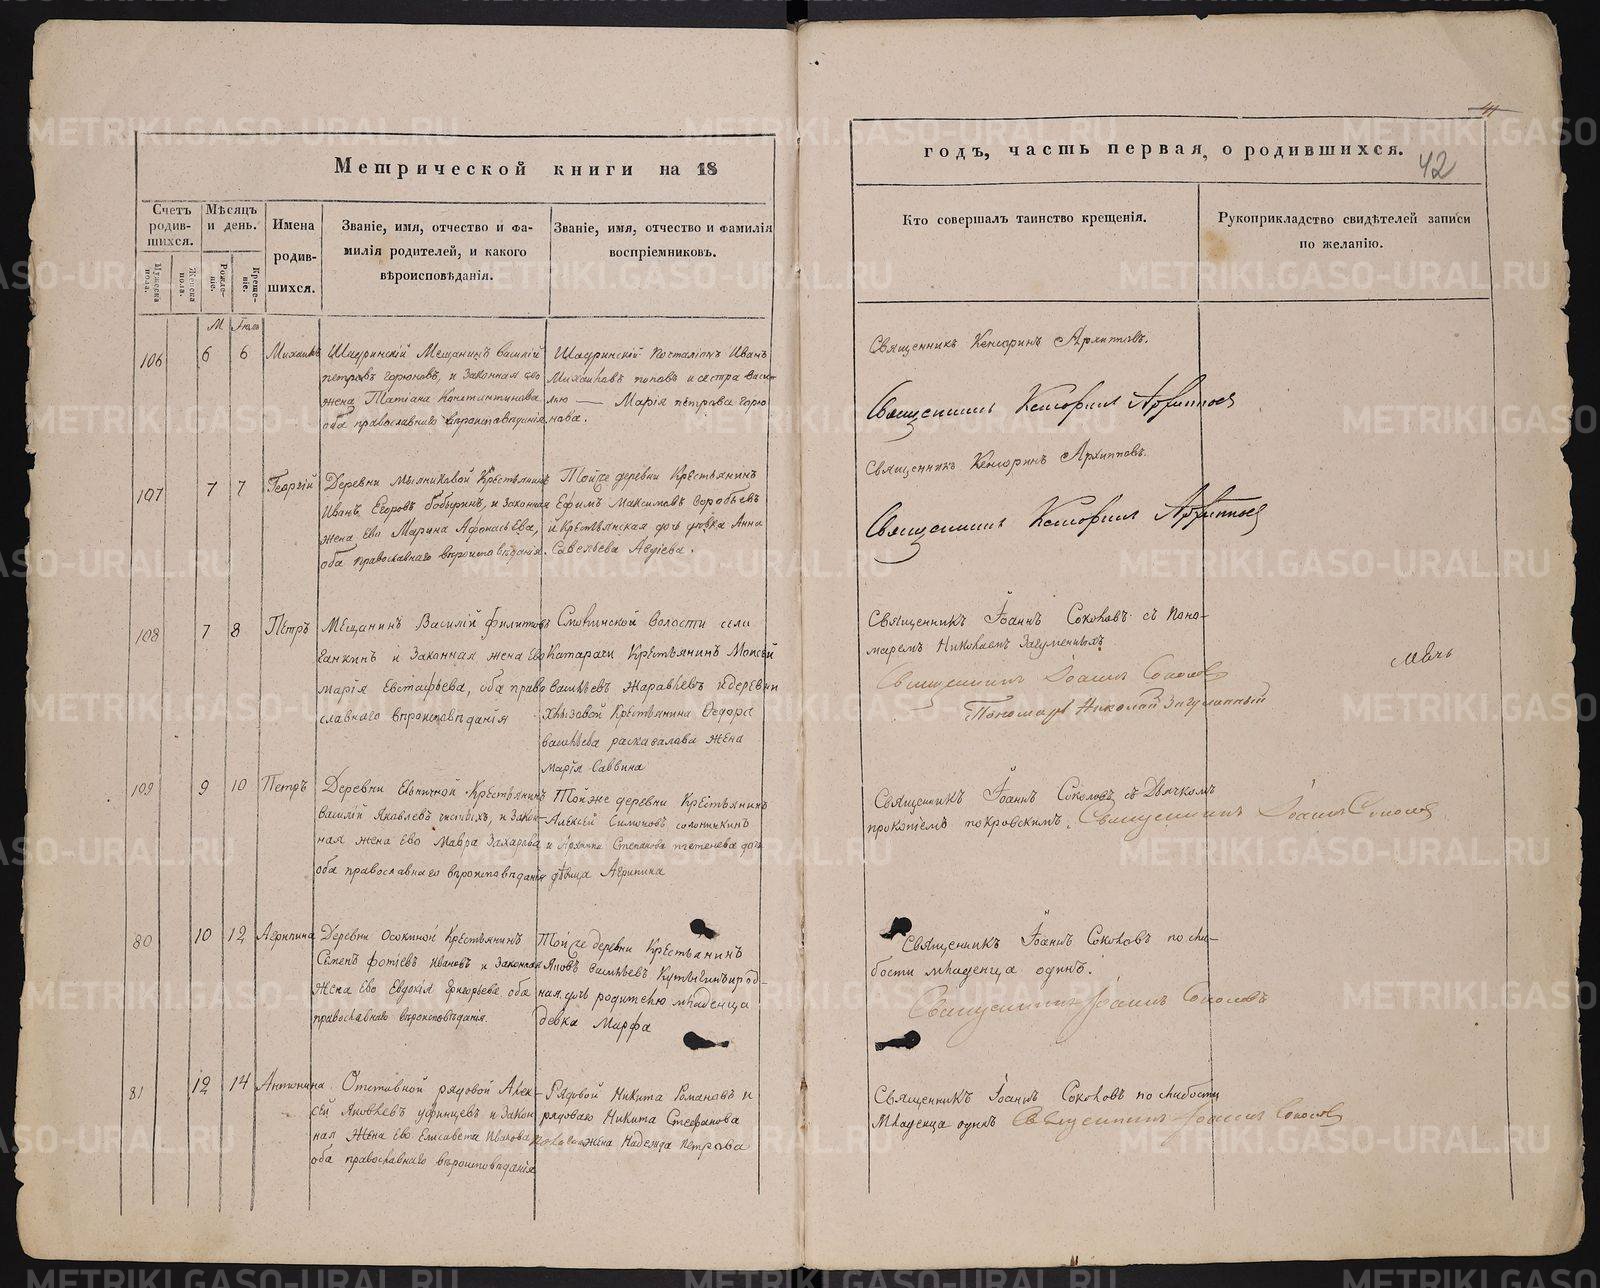 Метрической книги на 18
Счетъ родившихся.
Мужеска пола.
Женска пола.
Мѣсяцъ и день.
Рожденіе.
Крещеніе.
Имена родившихся.
Званіе, имя, отчество и фамилія родителей, и какого вѣроисповѣданія.
Званіе, имя, отчество и фамилія воспріемниковъ.
Іюль
106 6 6 Михаилъ
Шадринскій Мещанинъ Василій
Петровъ Горюновъ, и законная его
жена Татіана Константинова
оба православнаго вѣроисповѣданія.
Шадринскій Почталіонъ Иванъ
Михаиловъ Поповъ и сестра Васи-
лью — Марія Петрова Горю
нова.
107 7 7 Георгій
Деревни Мыльниковой Крестьянинъ
Иванъ Егоровъ Бобыкинъ, и законная
жена Его Марина Афонасьева,
оба православнаго вѣроисповѣданія.
Тойже деревни Крестьянинъ
Ефимъ Максимовъ Воробьевъ
и Крестьянская дочь дѣвка Анна
Савельева Авдіева.
108 7 8 Петръ
Мещанинъ Василій Филиповъ
и законная жена Его
Марія Евстафьева, оба право
славнаго вѣроисповѣданія
Смолинской Волости села
Катарачи Крестьянинъ Моисей
Васильевъ и деревни
Хлызовой Крестьянина Федора
Васильева жена
Марія Саввина
109 9 10 Петръ
Деревни Ельничной Крестьянинъ
Василій Яковлевъ и закон-
ная жена Его Мавра Захарова
оба православнаго вѣроисповѣданія
Тойже деревни Крестьянинъ
Алексей Симоновъ
и Архипа Степанова дочь
дѣвица Агрипина
80 10 12 Агрипина
Деревни Осокиной Крестьянинъ
Семенъ Фотіевъ Ивановъ и законная
жена Его Евдокія Григорьева оба
православнаго вѣроисповѣданія.
Тойже деревни Крестьянинъ
Яковъ Васильевъ и род-
ная дочь родителю младенца
девка Марфа
81 12 14 Антонина
Отставной рядовой Алек-
сей Яковлевъ и закон
ная жена Его Елисавета Иванова
оба православнаго вѣроисповѣданія
Рядовой Никита Романовъ и
рядоваго Никита Стефанова
жена Надежда Петрова
41
42
годъ, часть первая, о родившихся.
Кто совершалъ таинство крещенія.
Рукоприкладство свидѣтелей записи по желанію.
Священникъ Кенсоринъ Архипповъ.
Священникъ Кенсоринъ Архипповъ
Священникъ Кенсоринъ Архипповъ.
Священникъ Кенсоринъ Архипповъ
Священникъ Іоаннъ Соколовъ съ Поно-
маремъ Николаемъ Загуменныхъ
Священникъ Іоаннъ Соколовъ
Пономарь Николай Загуменный
Священникъ Іоаннъ Соколовъ съ Дьячкомъ
Прокопіемъ Покровскимъ. Священникъ Іоаннъ Соколовъ
Священникъ Іоаннъ Соколовъ по сла-
бости младенца одинъ.
Священникъ Іоаннъ Соколовъ
Священникъ Іоаннъ Соколовъ по слабости
Младенца одинъ Священникъ Іоаннъ Соколовъ
METRIKI.GASO-URAL.RU